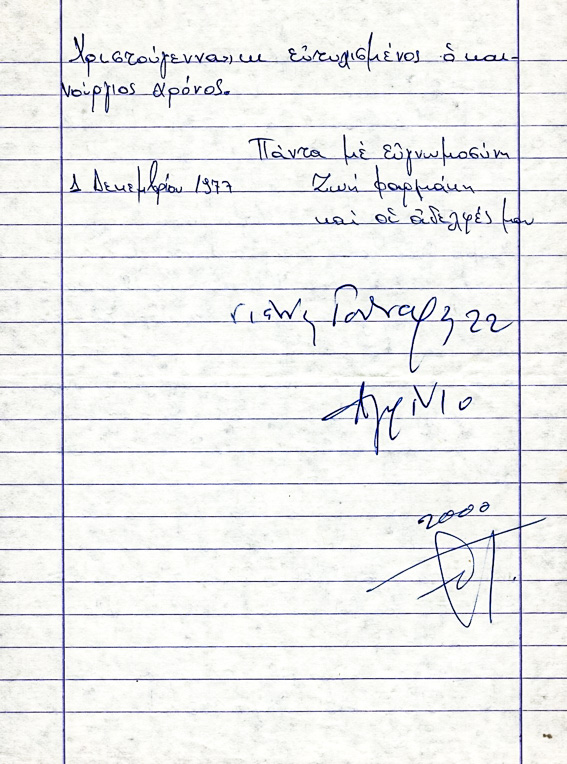 Χριστούγεννα» κι εὐτυχισμένος ὁ και-
νούργιος χρόνος.
Πάντα μὲ εὐγνωμοσύνη
1 Δεκεμβρίου 1977 Ζωή Φαρμάκη
καὶ οἱ ἀδελφές μου
Γούναρη 22
Αγρίνιο
2000